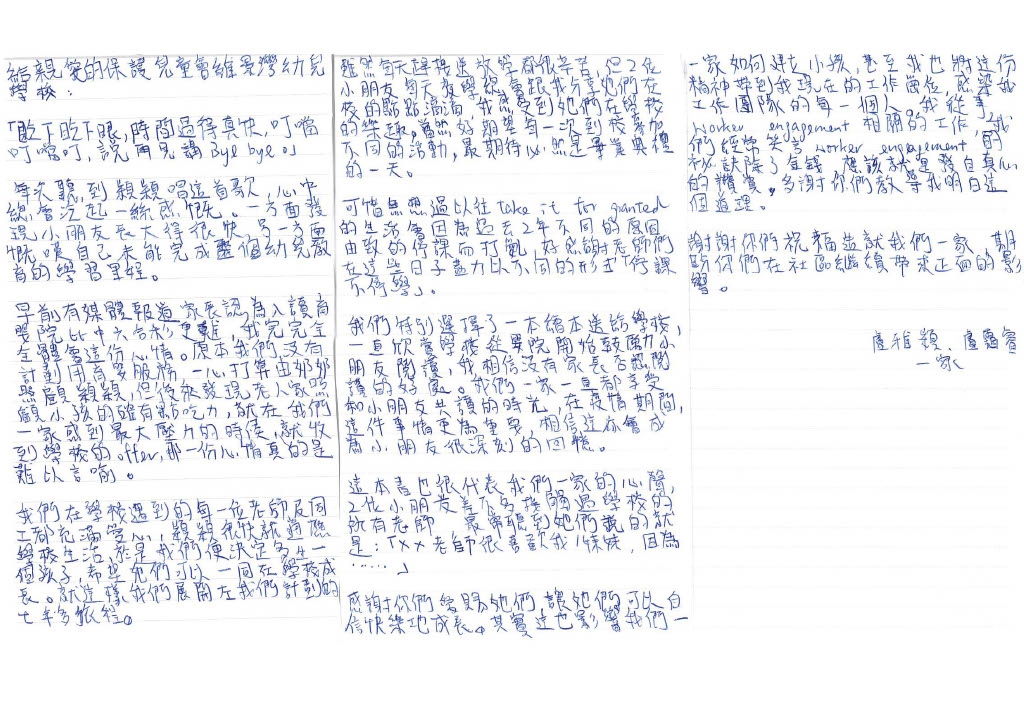 給親愛的保護兒童會維景灣幼兒
學校：
「眨下眨下眼，時間過得真快，叮噹
叮噹叮，説再見講Bye bye。」
每次聽到穎穎唱這首歌，心中
總會泛起一絲感慨。一方面發
現小朋友長大得很快，另一方面
慨嘆自己未能完成整個幼兒教
育的學習里程。
早前有媒體報道家長認為入讀育
嬰院比中六合彩更難，我完完全
全體會這份心情。原本我們沒有
計劃用育嬰服務，一心打算由奶奶
照顧穎穎，但後來發現老人家照
顧小孩的確有點吃力，就在我們
一家感到最大壓力的時侯，就收
到學校的offer，那一份心情真的是
難以言喻。
我們在學校遇到的每一位老師及同
工都充滿愛心，穎穎很快就適應
學校生活，於是我們便決定多生一
個孩子，希望她們可以一同在學校成
長。就這樣我們展開左我們計劃的
七年多旅程。
雖然每天趕接送放學都很辛苦，但2位
小朋友每天放學總會跟我分享她們在
校的點點滴滴，我感受到她們在學校
的樂趣。當然，好期望每一次到校參加
不同的活動，最期待必然是畢業典禮
的一天。
可惜無無過以往take it for granted
的生活會因為過去2年不同的原因
由致的停課而打亂，好感謝老師們
在這些日子盡力以不同的形式「停課
不停學」。
我們特別選擇了一本繪本送給學校，
一直欣賞學校從嬰院開始鼓勵小
朋友閱讀，我相信沒有家長否認閱
讀的好處。我們一家一直都享受
和小朋友共讀的時光，在疫情期間，
這件事情更為重要，相信這亦會成
為小朋友很深刻的回憶。
這本書也很代表我們一家的心聲，
2位小朋友差不多接觸過學校的
所有老師，最常聽到她們説的就
是：「XX老師很喜歡我/妹妹，因為
……」
感謝你們愛錫她們，讓她們可以自
信快樂地成長。其實這也影響我們一
一家如何對待小孩，甚至我也將這份
精神帶到我現在的工作崗位，感染我
工作團隊的每一個人。我從事
worker engagement 相關的工作，我
們經常笑説 worker engagement 的
秘訣除了金錢，應該就是發自真心
的讚賞。多謝你們教導我明白這
個道理。
謝謝你們祝福造就我們一家，期
盼你們在社區繼續帶來正面的影
響。
盧雅穎、盧
一家